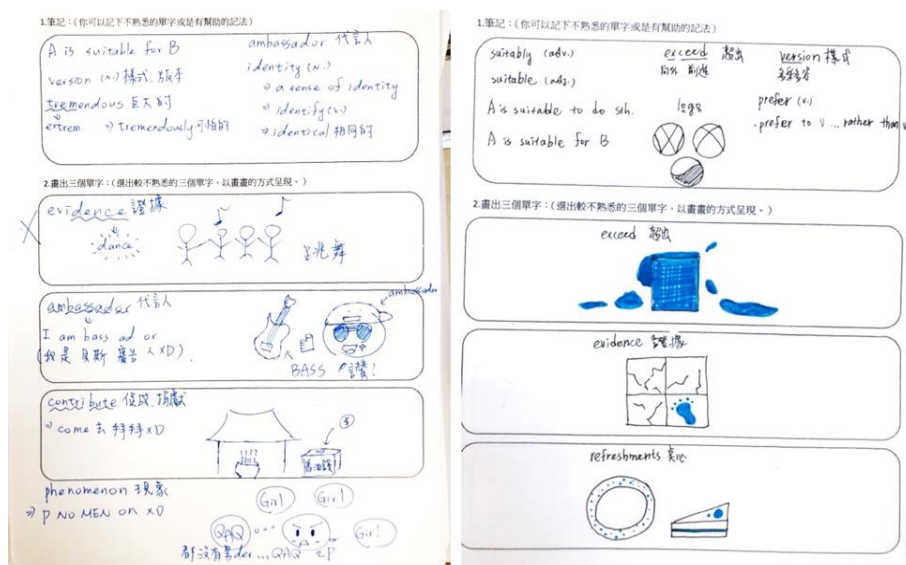 1.筆記：(你可以記下不熟悉的單字或是有幫助的記法)
A is suitable for B
version (n.) 樣式、版本
tremendous 巨大的
extrem ⇒ tremendously 可怕的
ambassador 代言人
identity (n.)
⇒ a sense of identity
⇒ identify (v.)
⇒ identical 相同的
2.畫出三個單字：(選出較不熟悉的三個單字，以畫畫的方式呈現。)
X
evidence 證據
dance
跳舞
ambassador 代言人
I am bass ad or
(我是貝斯廣告人XD)
ambassador
BASS
讚!
contribute 促成、捐獻
⇒ come 去 拜拜 XD
$
香油錢
phenomenon 現象
⇒ P NO MEN on XD
Girl
Girl
Girl
QAQ
都沒有男der...QAQ
1.筆記：(你可以記下不熟悉的單字或是有幫助的記法)
suitably (adv.)
suitable (adj.)
A is suitable to do sth.
A is suitable for B
exceed 超出
向外 前進
logo
version 樣式
prefer (v.)
.prefer to V... rather than V
2.畫出三個單字：(選出較不熟悉的三個單字，以畫畫的方式呈現。)
exceed 超出
evidence 證據
refreshments 點心